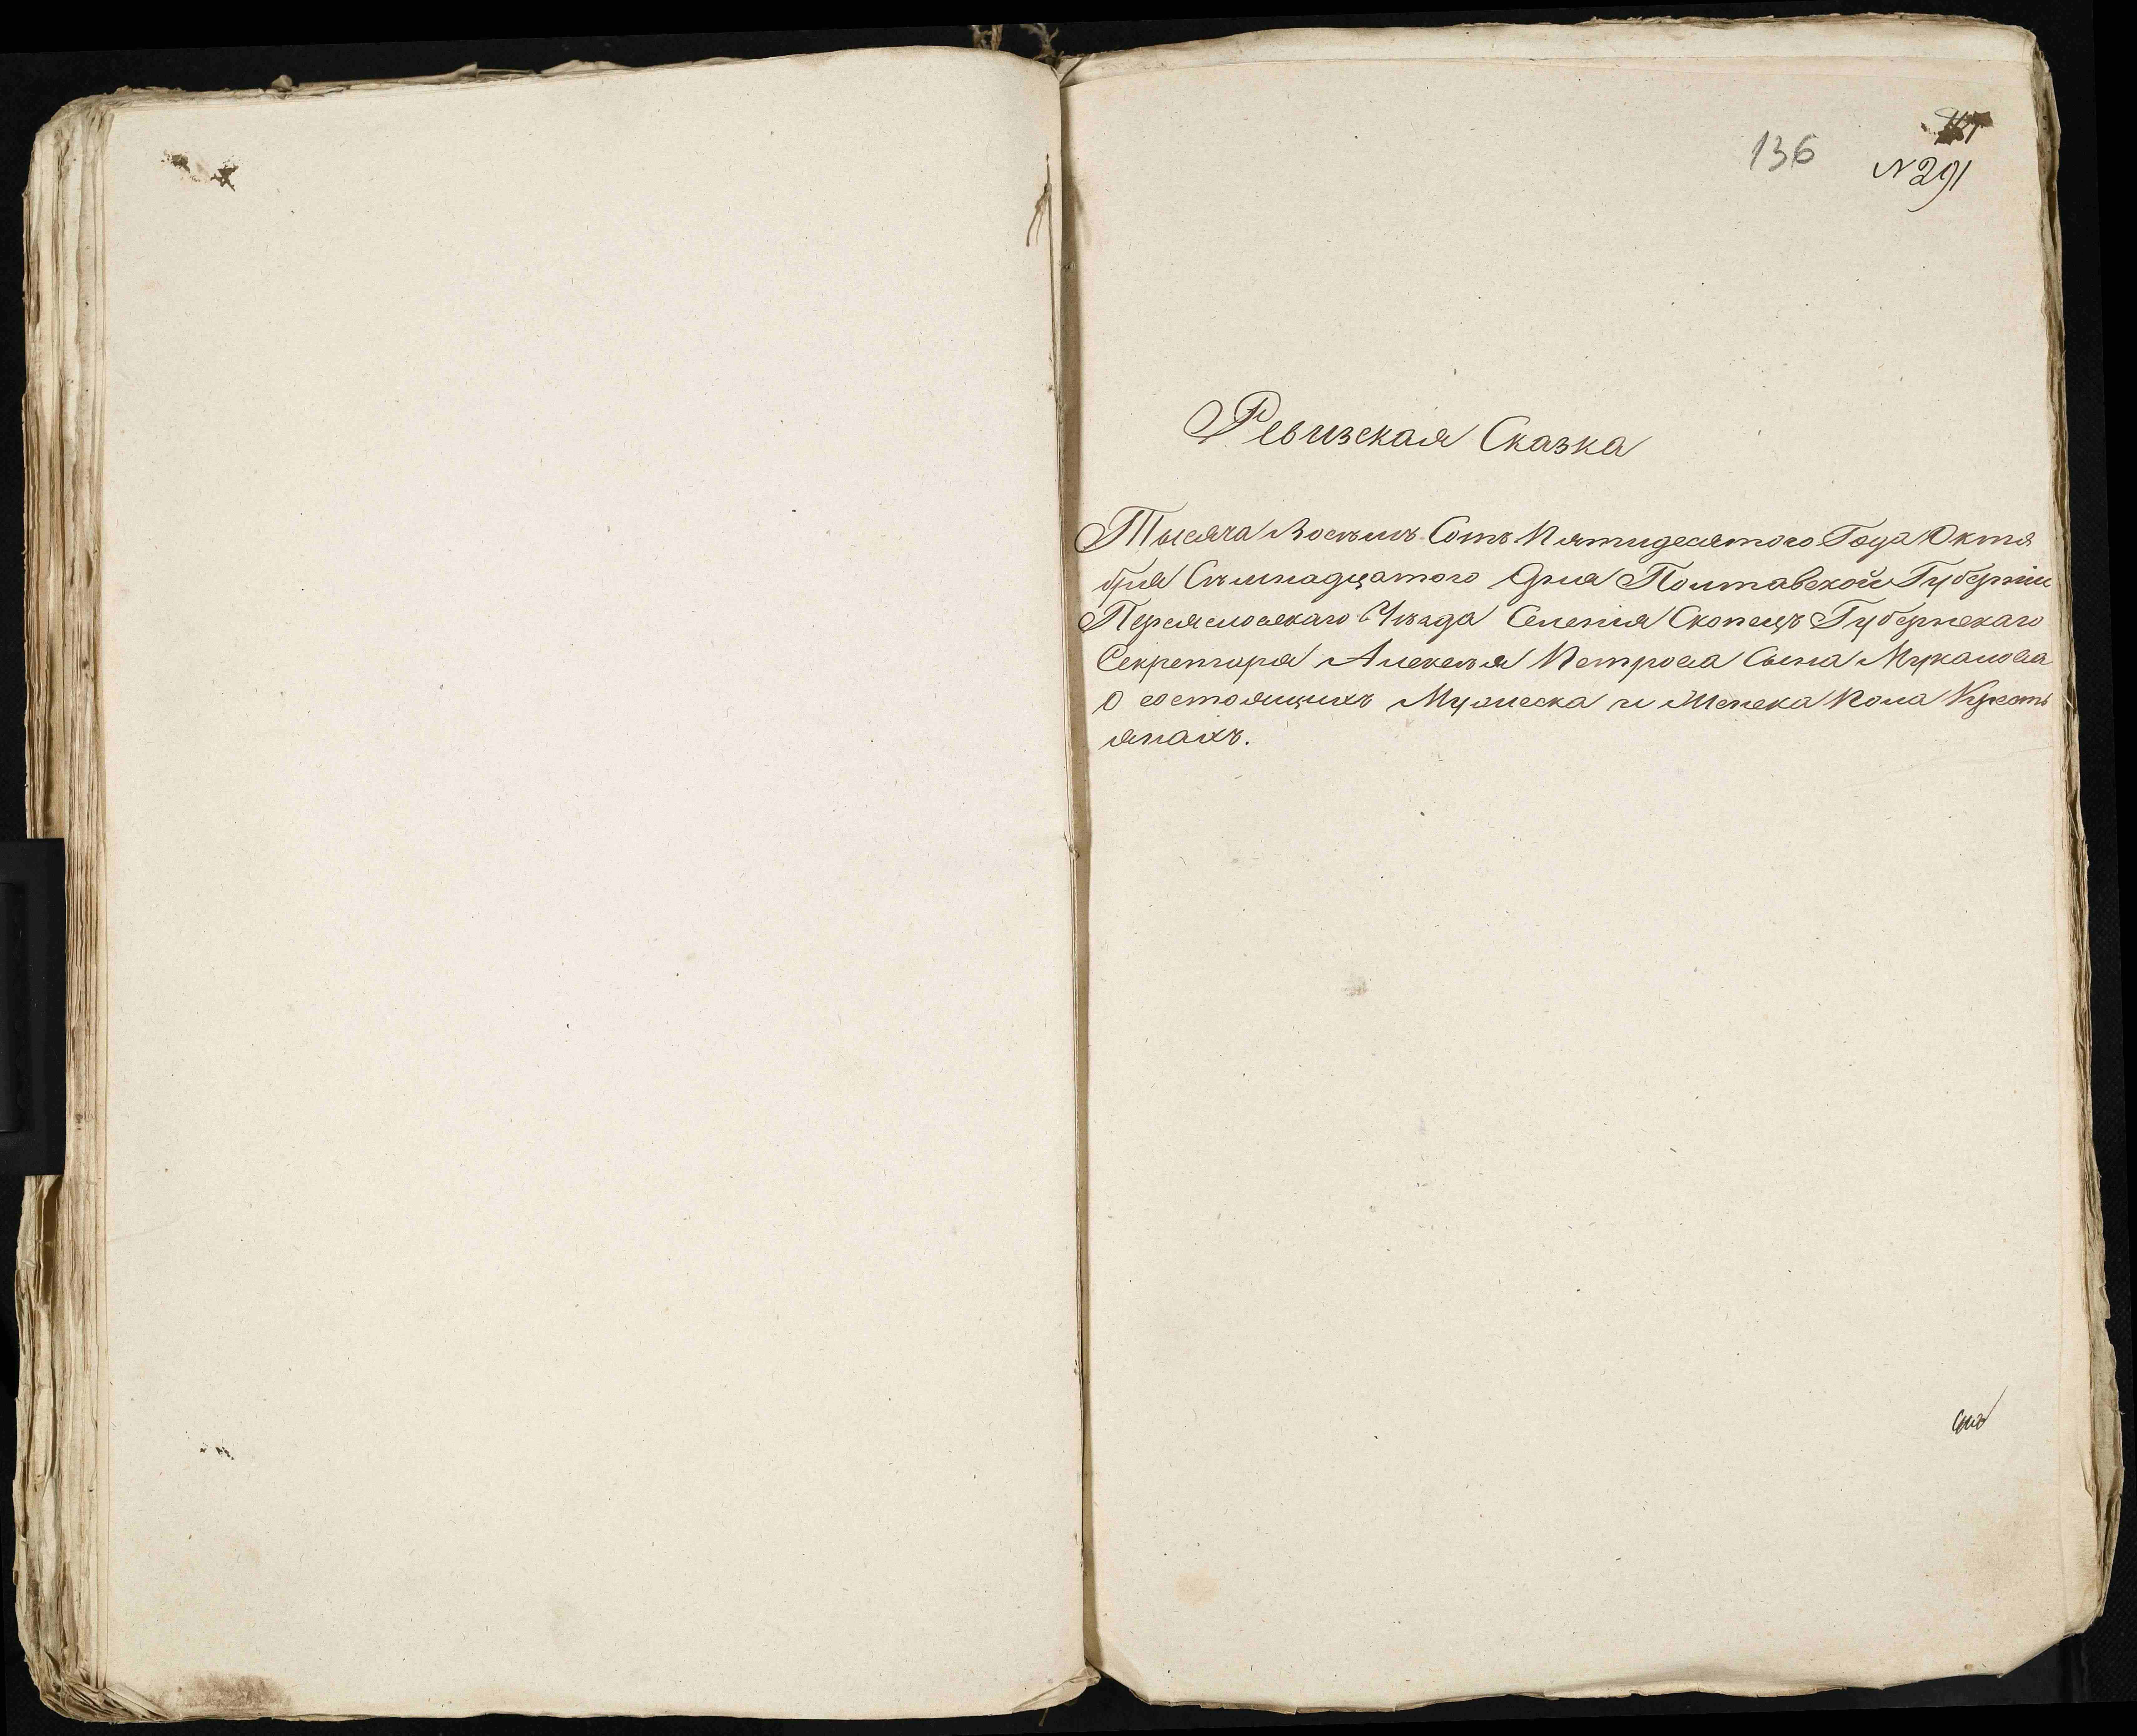 136
N 291
Ревизская Сказка
Тысяча Восемь Сотъ Пятидесятого Года Октя
бря Семнадцатого Дня Полтавской Губерніи
Переяславскаго Уезда Селенія Скопецъ Губернскаго
Секретаря Алексея Петрова Сына
О состоящихъ Мужеска и Женска Пола Кресть
янахъ.